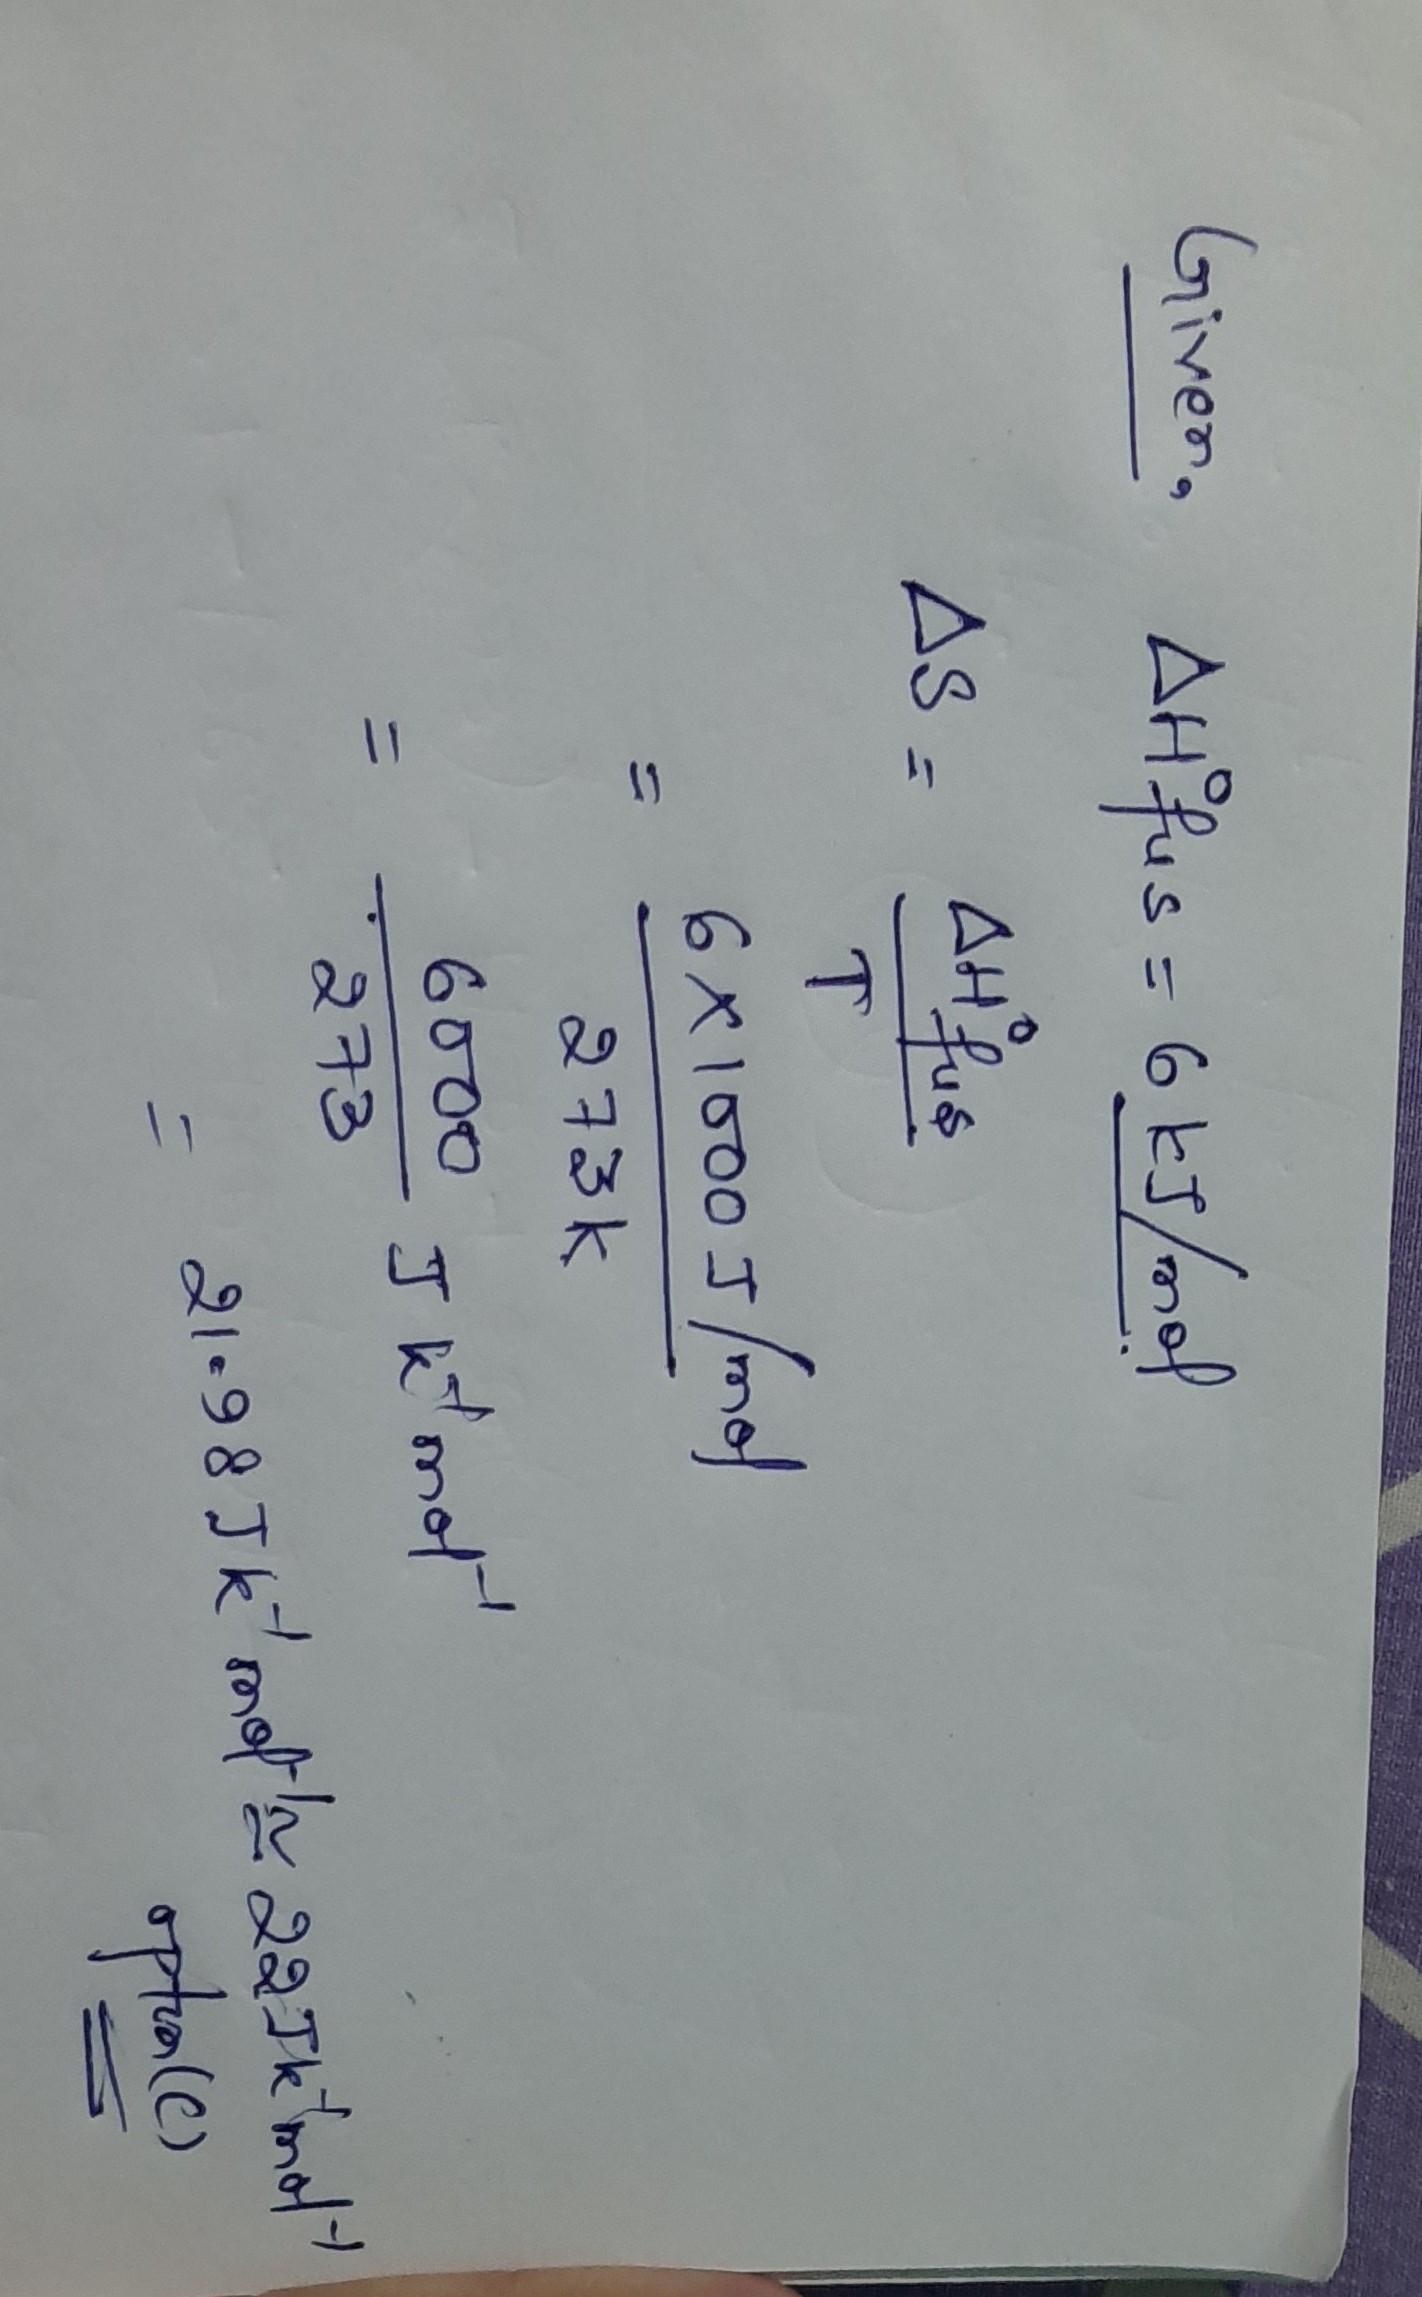 Given, ΔH°fus = 6 kJ/mol
ΔS = ΔH°fus / T
= 6×1000 J/mol / 273k
= 6000 / 273 J k⁻¹ mol⁻¹
= 21.98 J k⁻¹ mol⁻¹ ≃ 22 J k⁻¹ mol⁻¹
option (C)